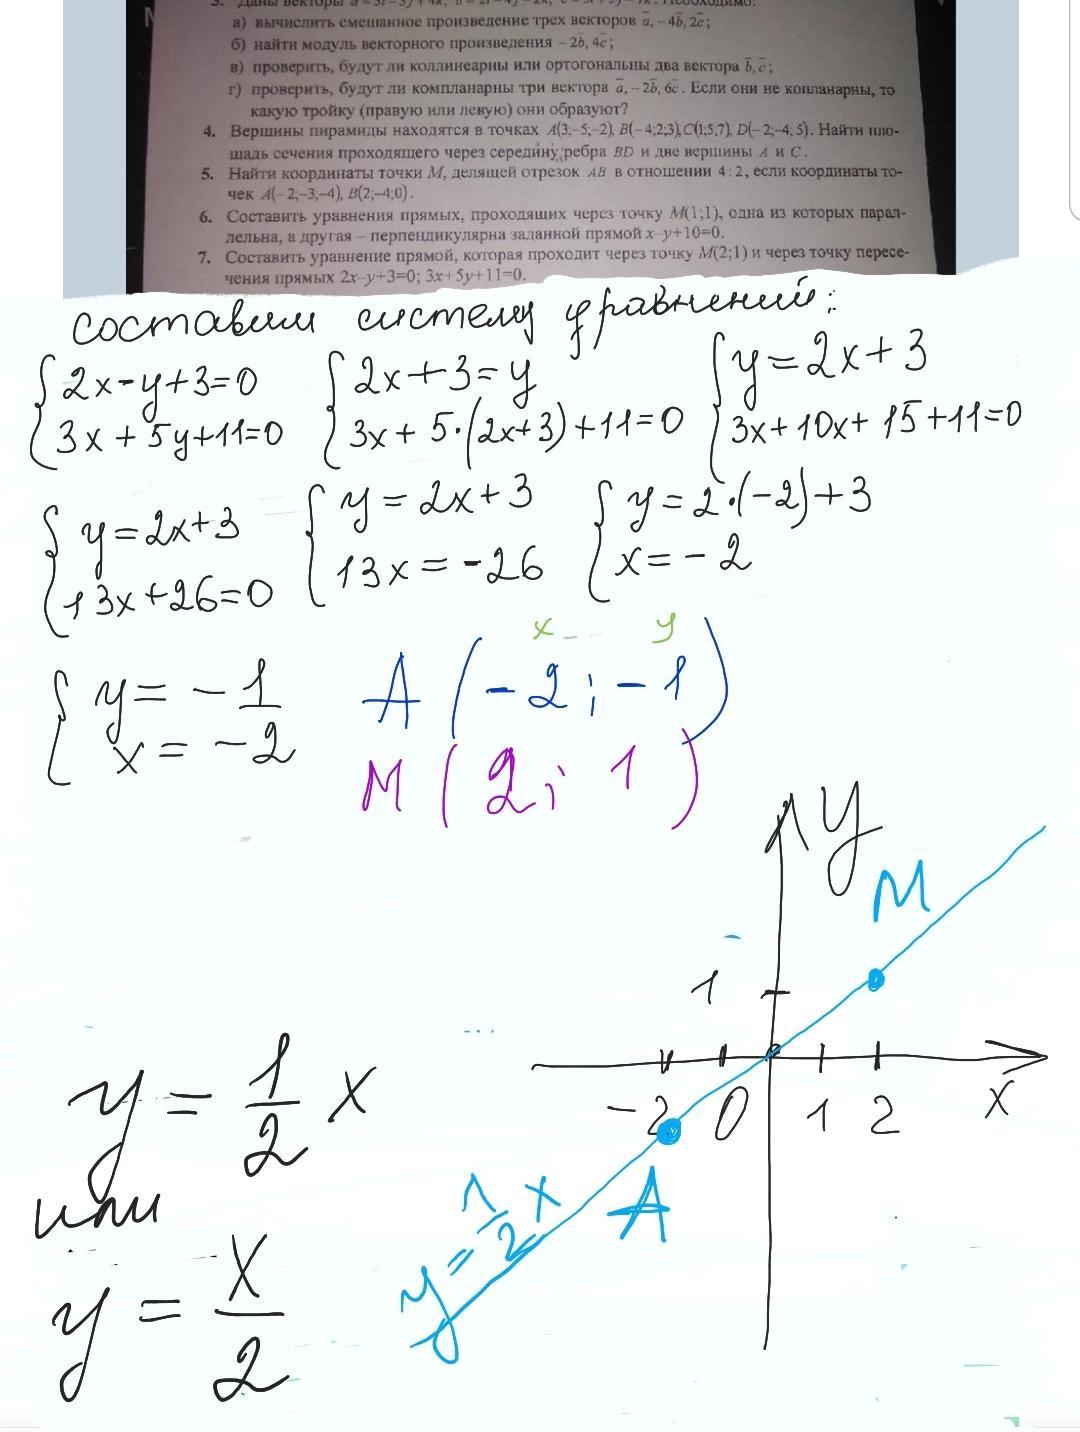 3. Даны векторы
а) вычислить смешанное произведение трех векторов a̅, −4b̅, 2c̅;
б) найти модуль векторного произведения −2b̅, 4c̅;
в) проверить, будут ли коллинеарны или ортогональны два вектора b̅, c̅;
г) проверить, будут ли компланарны три вектора a̅, −2b̅, 6c̅. Если они не копланарны, то
какую тройку (правую или левую) они образуют?
4. Вершины пирамиды находятся в точках A(3;−5;−2), B(−4;2;3), C(1;5;7), D(−2;−4; 5). Найти пло-
щадь сечения проходящего через середину ребра BD и две вершины A и C.
5. Найти координаты точки M, делящей отрезок AB в отношении 4:2, если координаты то-
чек A(−2;−3;−4), B(2;−4;0).
6. Составить уравнения прямых, проходящих через точку M(1;1), одна из которых парал-
лельна, а другая – перпендикулярна заданной прямой x−y+10=0.
7. Составить уравнение прямой, которая проходит через точку M(2;1) и через точку пересе-
чения прямых 2x−y+3=0; 3x+5y+11=0.
составим систему уравнений:
2x-y+3=0 2x+3=y y=2x+3
3x+5y+11=0 3x+5·(2x+3)+11=0 3x+10x+15+11=0
y=2x+3 y=2x+3 y=2·(-2)+3
13x+26=0 13x=-26 x=-2
x y
y=-1 A(-2;-1)
x=-2 M(2;1)
y
M
1
-2 0 1 2 x
A
y=1/2 x
y=1/2 x
или
y=x/2